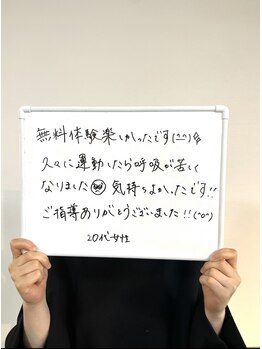 無料体験楽しかったです(^^)
久々に運動したら呼吸が苦しく
なりました 気持ちよかったです!!
ご指導ありがとうございました!!(^o^)
20代女性